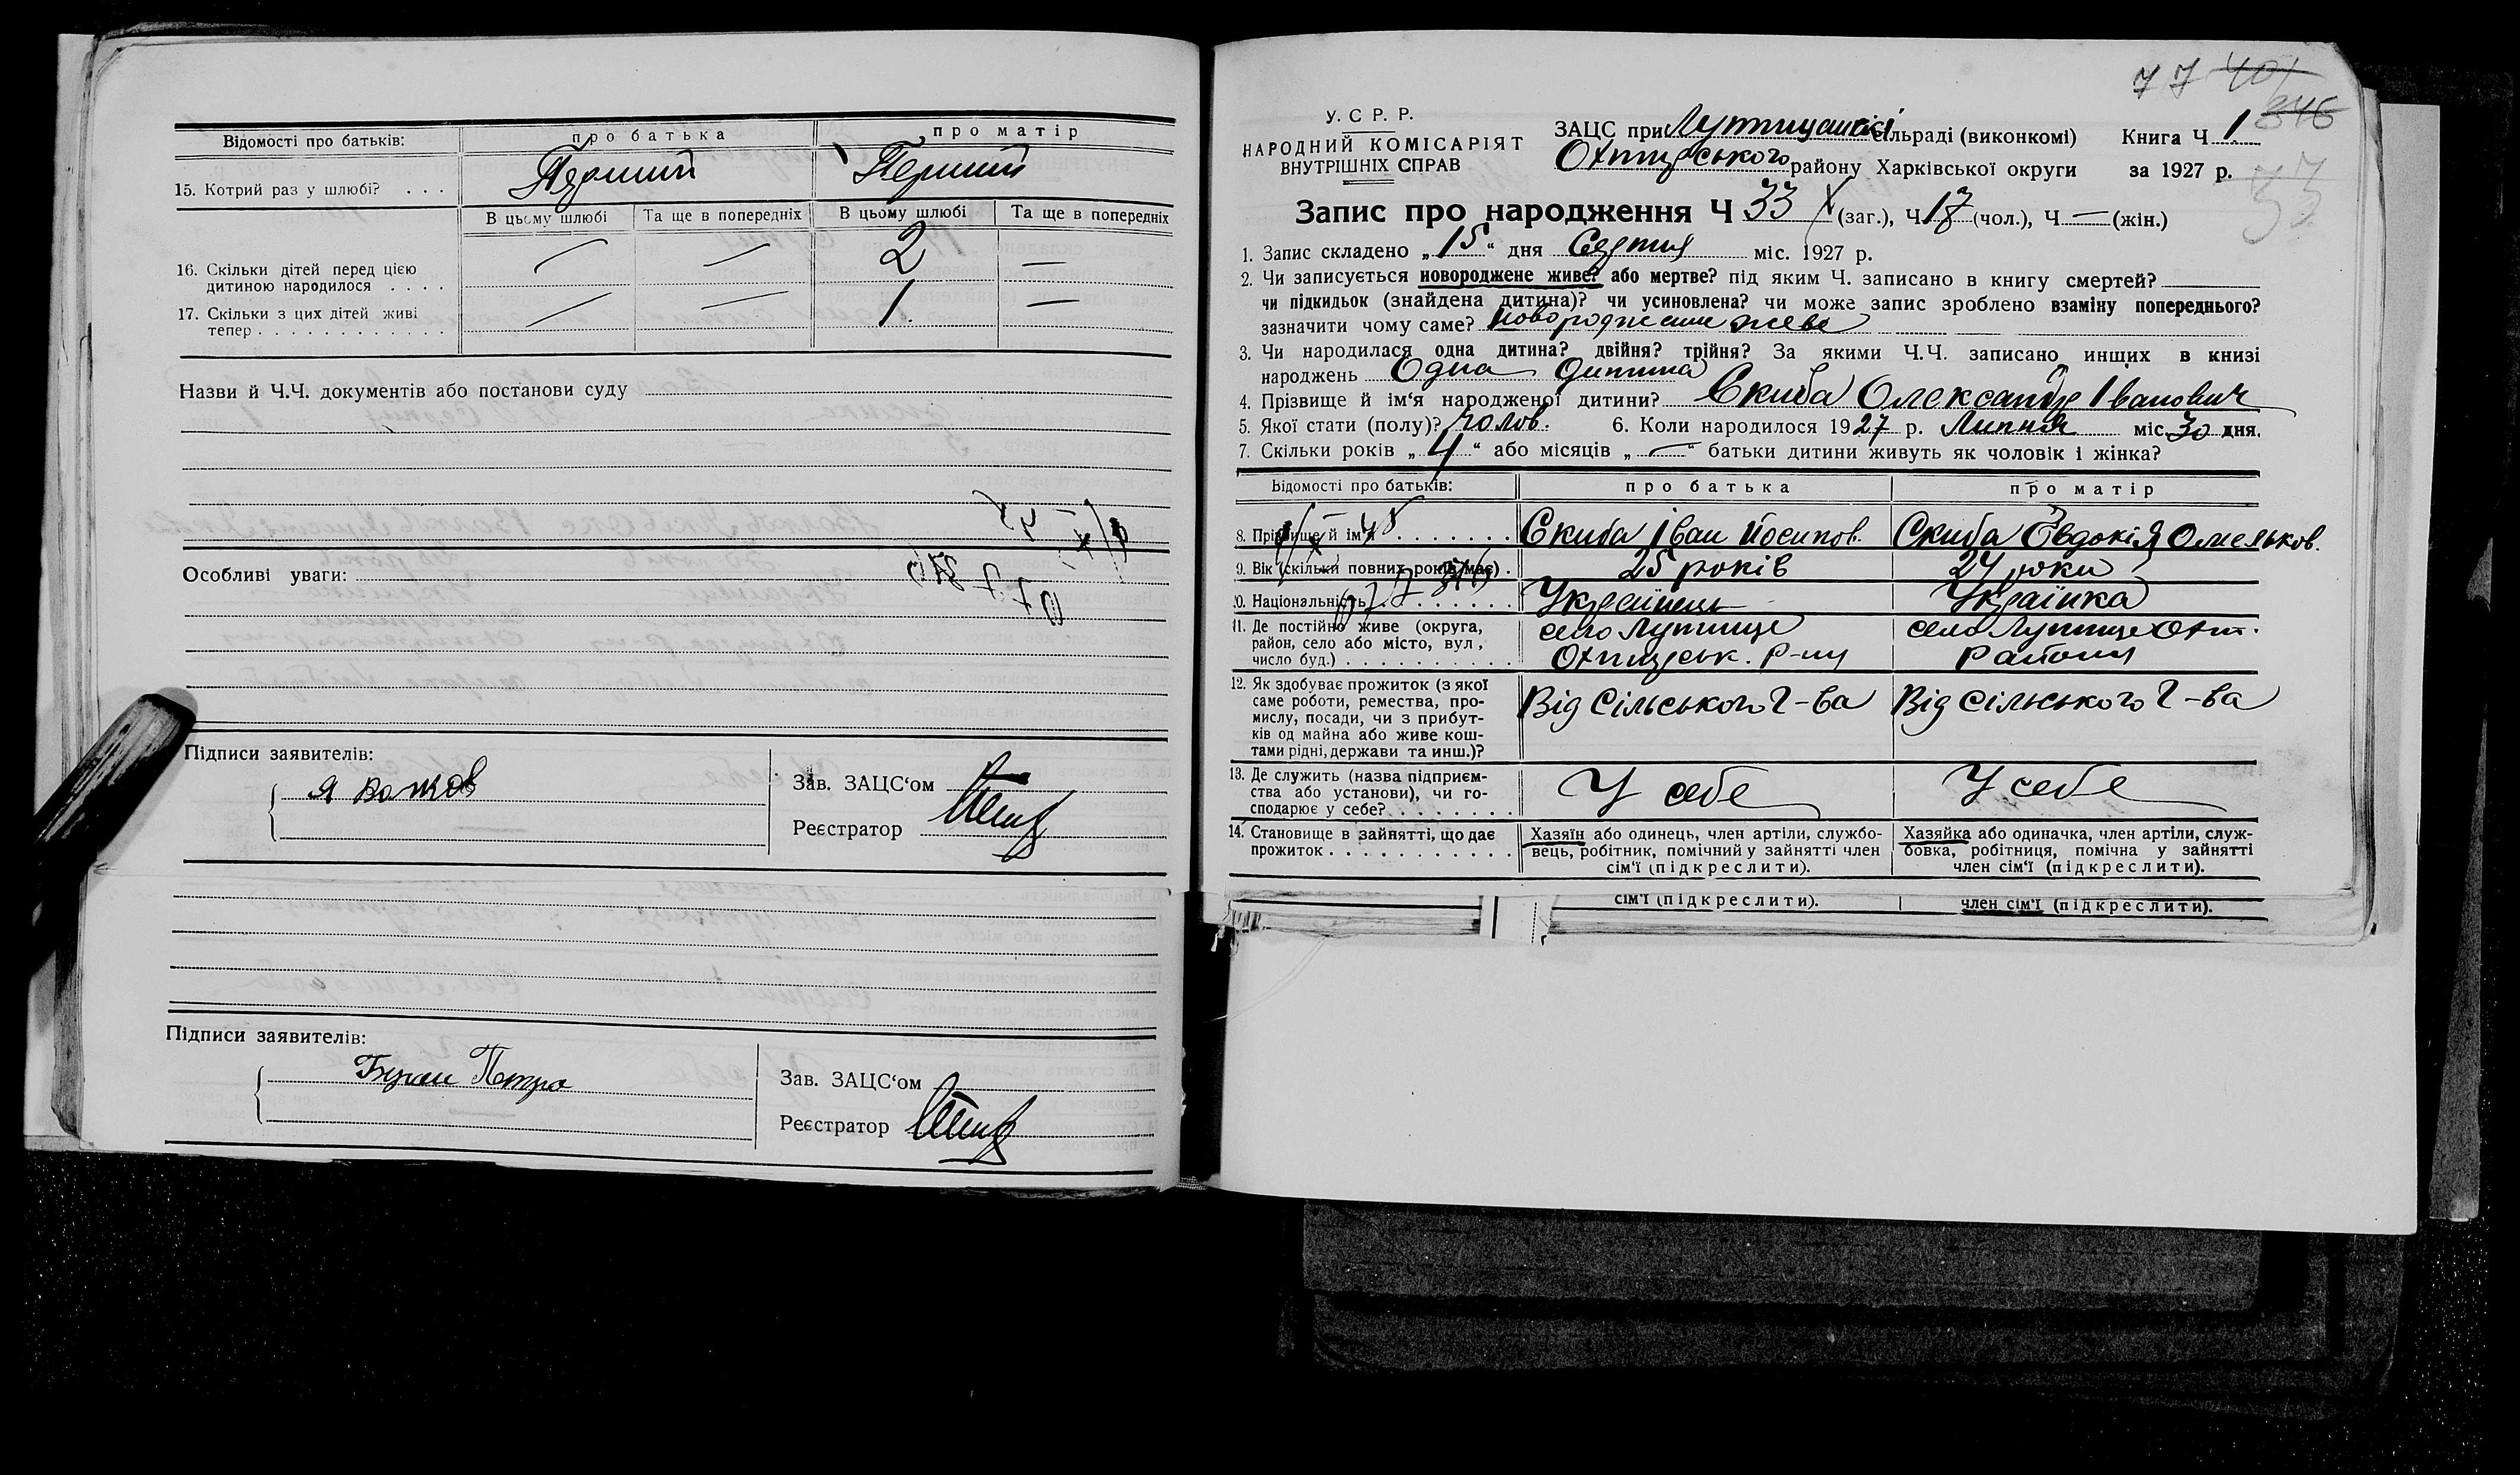 Відомості про батьків: про батька про матір
15. Котрий раз у шлюбі? . . . Перший Перший
В цьому шлюбі Та ще в попередніх В цьому шлюбі Та ще в попередніх
16. Скільки дітей перед цією
дитиною народилося . . . . — — 2 —
17. Скільки з цих дітей живі
тепер . . . . . . . . . . . . — — 1. —
Назви й Ч.Ч. документів або постанови суду
Особливі уваги:
Підписи заявителів:
Зав. ЗАЦС‘ом
Реєстратор
Підписи заявителів:
Петро
Зав. ЗАЦС‘ом
Реєстратор
77 401
346
33
У. С. Р. Р.
НАРОДНИЙ КОМІСАРІЯТ
ВНУТРІШНІХ СПРАВ
ЗАЦС при сільраді (виконкомі) Книга Ч 1
району Харківської округи за 1927 р.
Запис про народження Ч 33 (заг.), Ч 17 (чол.), Ч — (жін.)
1. Запис складено „15“ дня Серпня міс. 1927 р.
2. Чи записується новороджене живе? або мертве? під яким Ч. записано в книгу смертей?
чи підкидьок (знайдена дитина)? чи усиновлена? чи може запис зроблено взаміну попереднього?
зазначити чому саме? новороджене живе
3. Чи народилася одна дитина? двійня? трійня? За якими Ч.Ч. записано инших в книзі
народжень Одна дитина
4. Прізвище й ім‘я народженої дитини? Скиба Олександр Іванович
5. Якої стати (полу)? чолов. 6. Коли народилося 1927 р. Липня міс. 30 дня.
7. Скільки років „4“ або місяців „—“ батьки дитини живуть як чоловік і жінка?
Відомості про батьків: про батька про матір
8. Прізвище й ім‘я . . . . . . . Скиба Іван Йосипов. Скиба Євдокія Омельков.
9. Вік (скільки повних років має) . 25 років 24 роки
10. Національність . . . . . . . . Українець Українка
11. Де постійно живе (округа, село Лутище село Лутище Охт.
район, село або місто, вул., р-ну району
число буд.) . . . . . . . . . . .
12. Як здобуває прожиток (з якої Від сільського г-ва Від сільського г-ва
саме роботи, ремества, про-
мислу, посади, чи з прибут-
ків од майна або живе кош-
тами рідні, держави та инш.)?
13. Де служить (назва підприєм- У себе У себе
ства або установи), чи го-
сподарює у себе? . . . . . . . .
14. Становище в зайнятті, що дає
прожиток . . . . . . . . . . .
Хазяїн або одинець, член артіли, службо-
вець, робітник, помічний у зайнятті член
сім‘ї (підкреслити).
Хазяйка або одиначка, член артіли, служ-
бовка, робітниця, помічна у зайнятті
член сім‘ї (підкреслити).
сім‘ї (підкреслити). член сім‘ї (підкреслити).